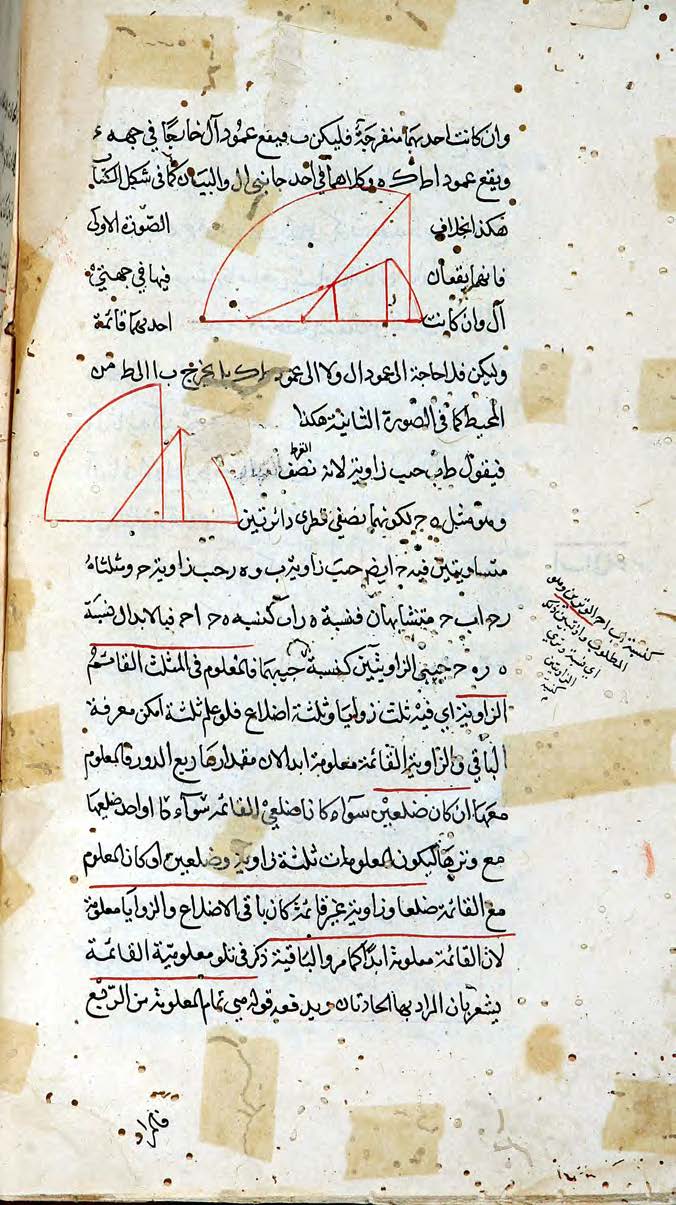 وان كانت احديهما منفرجة فليكن ب فيقع عمود ال خارجا في جهة ء
ويقع عمودا ط ك ه وكلاهما في احد جانبي ال والبيان كما في شكل الكتاب
هكذا بخلاف الصورة الاولى
فانهما يقعان فيها في جهتي
ال وان كانت احديهما قائمة
وليكن فلا حاجة الى عمود ال ولا الى عمود بل يخرج ب ا الى ط من
المحيط كما في الصورة الثانية هكذا
فيقول ط ب جيب زاوية لانه نصف القطر
وهو مثل ه ج لكونهما نصفي قطري دائرتين
متساويتين فيه ج ايضا جيب زاوية ب و ه ر جيب زاوية ج ومثلثاه
ر ج اب ج متشابهان فنسبة ه ر اب كنسبة ه ج ا ج فبالابدال نسبة
ه ر ه ج جيبي الزاويتين كنسبة فالمعلوم في المثلث القائم
الزاوية اي فيه ثلث زوايا وثلثة اضلاع فلو علم ثلثة امكن معرفة
الباقي والزاوية القائمة معلومة ابدا لان مقدارها ربع الدور فالمعلوم
معها ان كان ضلعين سواء كانا ضلعي القائمة سواء كانا واحد ضلعيها
مع وترها ليكون المعلومات ثلثة زاوية وضلعين او كان المعلوم
مع القائمة ضلعا وزاوية غير قائمة كان باقي الاضلاع والزوايا معلومة
لان القائمة معلومة ابدا كما مر والباقية ذكر في تلو معلومية القائمة
يشعر بان المراد بها الحادتان ويدفعه قوله هي تمام المعلومة من الربع
كنسبة اب ا ج الوترين وهو
المطلوب
اي نسبة
الزاويتين
كنسبة